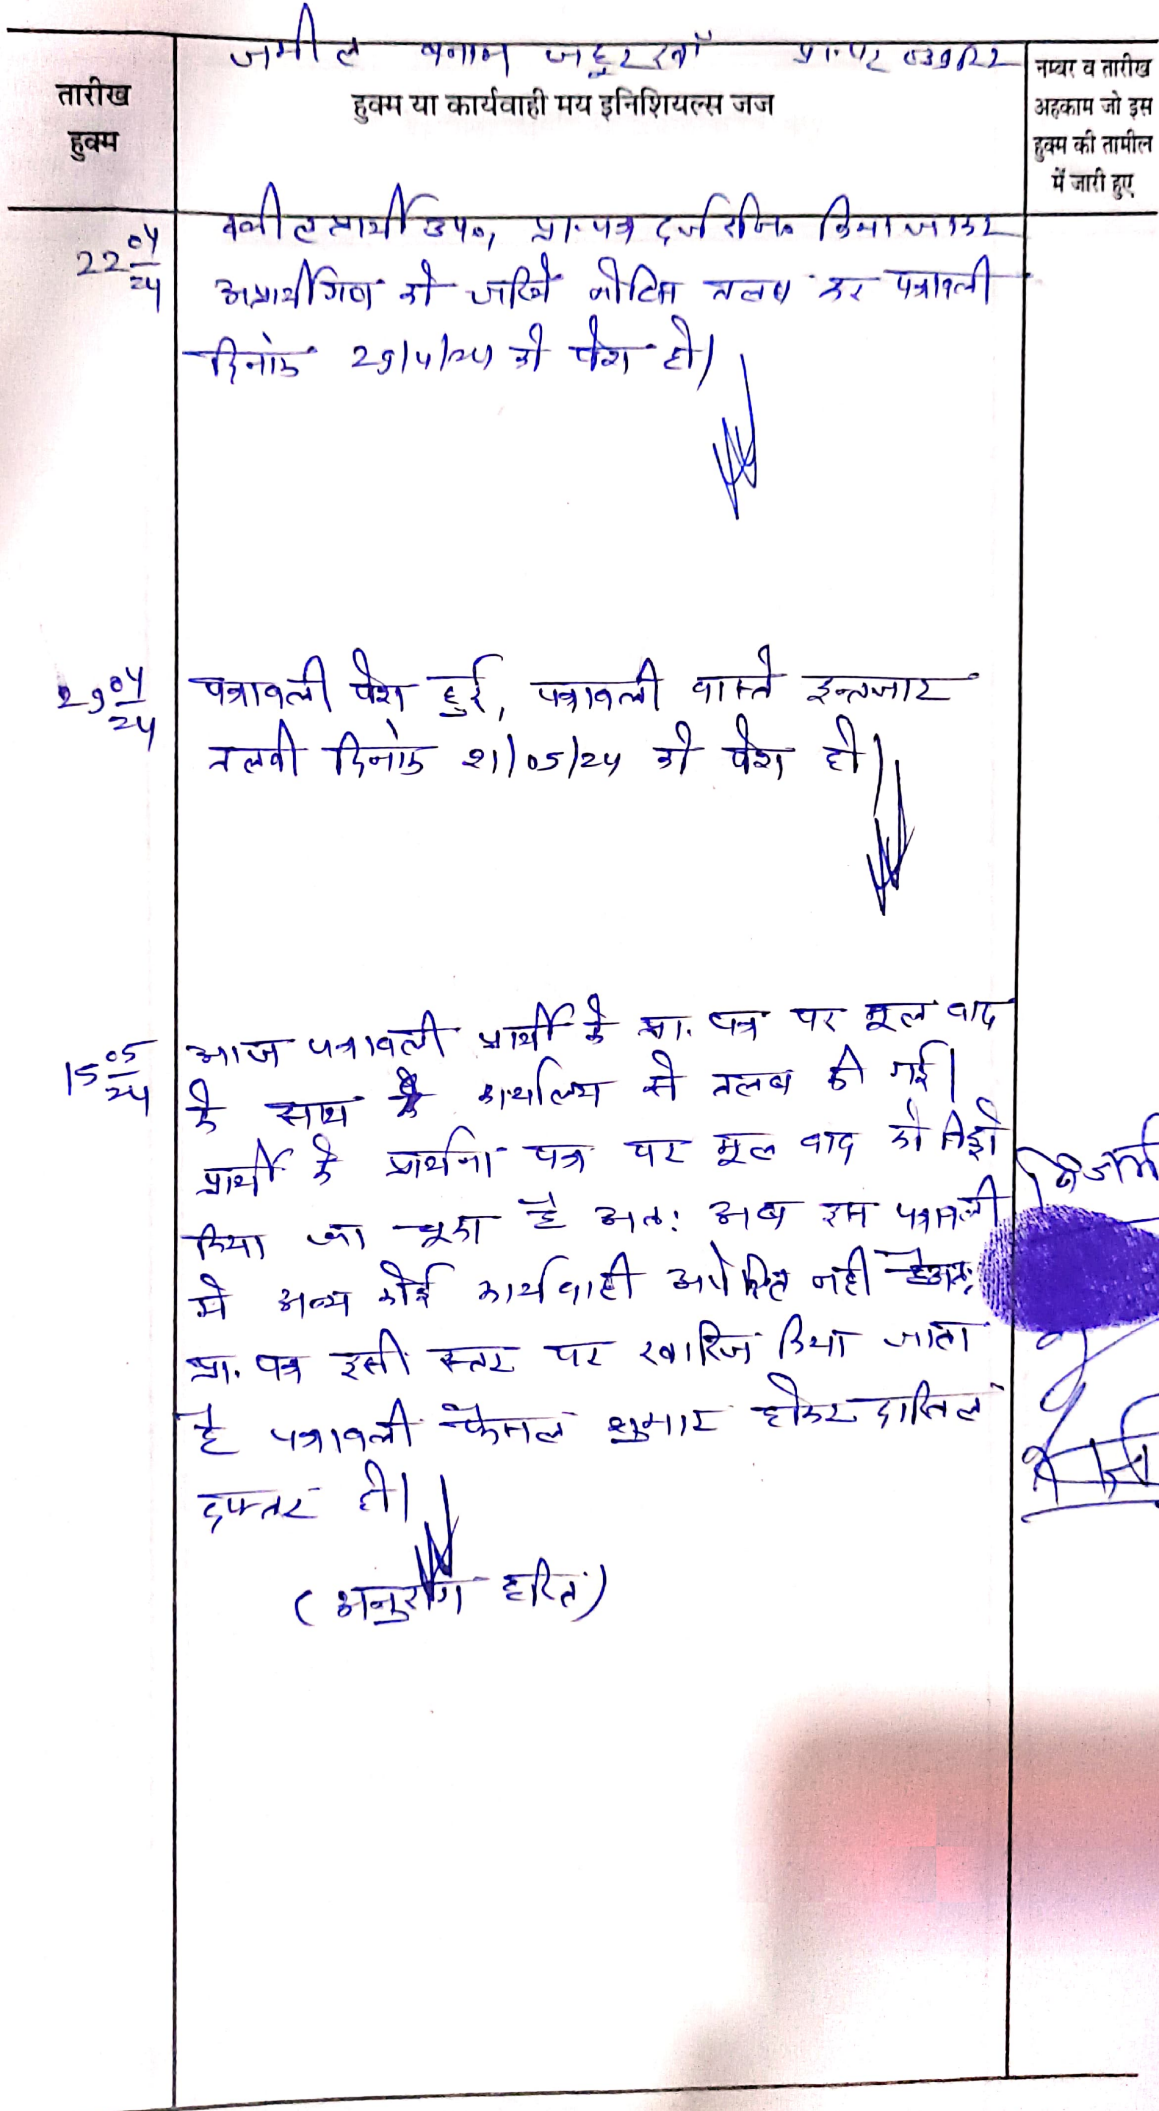 जमील बनाम जहुर खाँ प्रा.पत्र
तारीख
हुक्म
हुक्म या कार्यवाही मय इनिशियल्स जज
नम्बर व तारीख
अहकाम जो इस
हुक्म की तामील
में जारी हुए
22 04/24
वकील प्रार्थी उप०, प्रा.पत्र दर्ज रजि० किया जाकर
अप्रार्थीगण को जरिये नोटिस तलब कर पत्रावली
दिनांक 29/4/24 को पेश हो।
29 04/24
पत्रावली पेश हुई, पत्रावली वास्ते इन्तजार
तलवी दिनांक 21/05/24 को पेश हो।
15 05/24
आज पत्रावली प्रार्थी के प्रा. पत्र पर मूल वाद
के साथ कार्यालय से तलब की गई।
प्रार्थी के प्रार्थना पत्र पर मूल वाद को विड्रो
किया जा चूका है अतः अब इस पत्रावली
मे अन्य कोई कार्यवाही अपेक्षित नही है अतः
प्रा. पत्र इसी स्तर पर खारिज किया जाता
है पत्रावली फैसल शुमार होकर दाखिल
दफ्तर हो।
(अनुराग हरित)